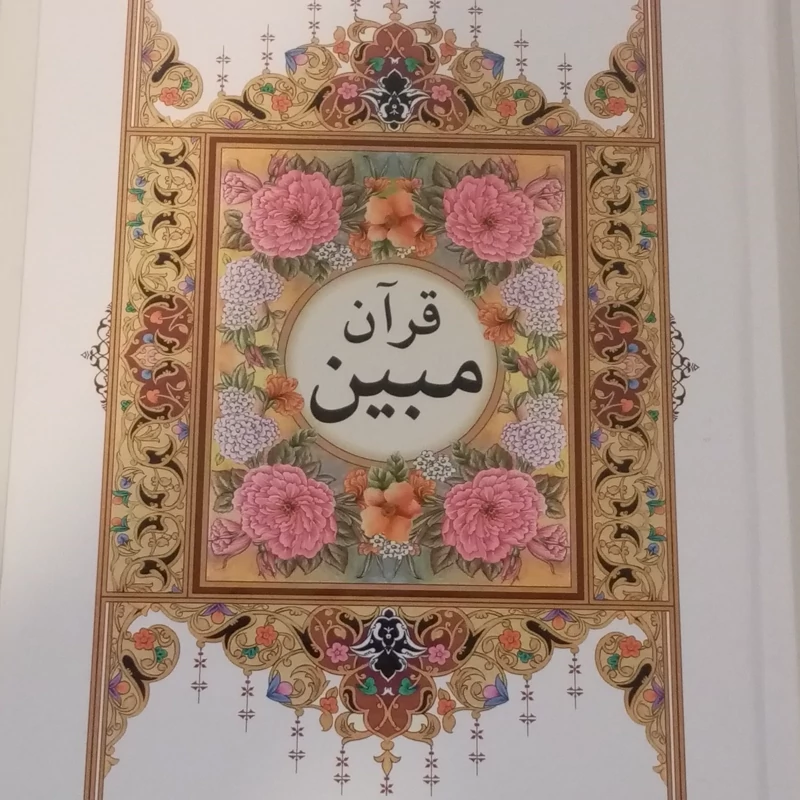 قرآن
مبین